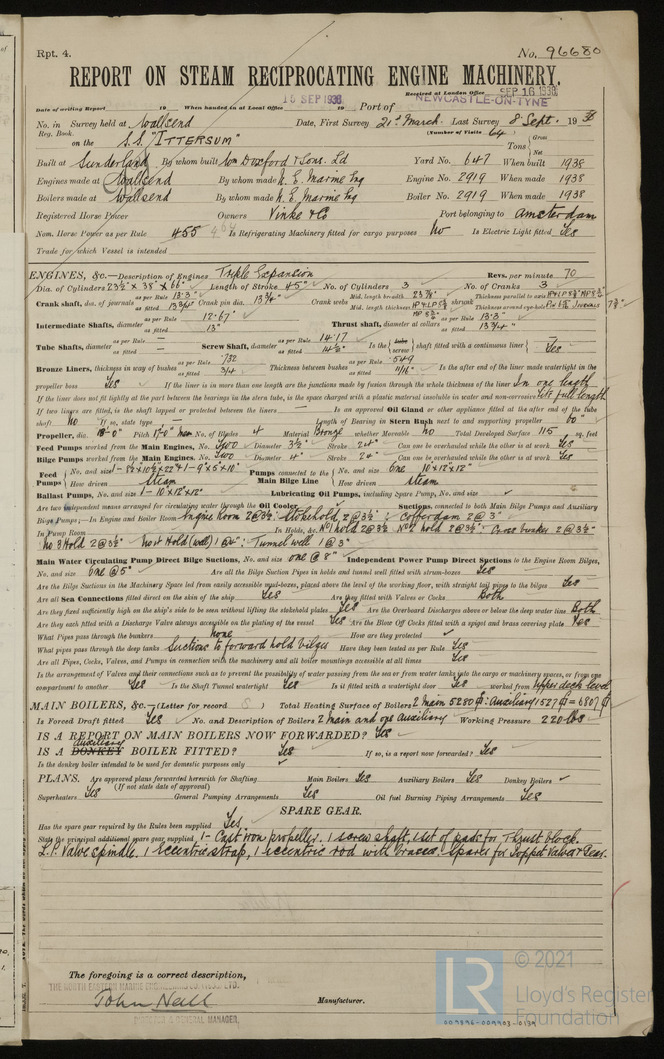 Rpt. 4. No. 96680
REPORT ON STEAM RECIPROCATING ENGINE MACHINERY.
Received at London Office SEP 16 1938
Date of writing Report 19 When handed in at Local Office 15 SEP 1938 19 Port of NEWCASTLE-ON-TYNE
No. in Reg. Book. Survey held at Wallsend Date, First Survey 21st March Last Survey 8 Sept. 1938
(Number of Visits 64)
on the S.S. "ITTERSUM" Tons Gross Net
Built at Sunderland By whom built Wm Doxford & Sons. Ld Yard No. 647 When built 1938
Engines made at Wallsend By whom made N. E. Marine Eng Engine No. 2919 When made 1938
Boilers made at Wallsend By whom made N. E. Marine Eng Boiler No. 2919 When made 1938
Registered Horse Power Owners Vinke & Co Port belonging to Amsterdam
Nom. Horse Power as per Rule 455 464 Is Refrigerating Machinery fitted for cargo purposes No Is Electric Light fitted Yes
Trade for which Vessel is intended
ENGINES, &c.—Description of Engines Triple Expansion Revs. per minute 70
Dia. of Cylinders 23½" x 38" x 66" Length of Stroke 45" No. of Cylinders 3 No. of Cranks 3
Crank shaft, dia. of journals as per Rule 13·3" as fitted 13¾" Crank pin dia. 13¾" Crank webs Mid. length breadth 23⅞" Mid. length thickness shrunk Thickness parallel to axis Thickness around eye-hole
Intermediate Shafts, diameter as per Rule 12·67" as fitted 13" Thrust shaft, diameter at collars as per Rule 13·3" as fitted 13¾"
Tube Shafts, diameter as per Rule — as fitted — Screw Shaft, diameter as per Rule 14·17 as fitted 14½" Is the tube screw shaft fitted with a continuous liner Yes
Bronze Liners, thickness in way of bushes as per Rule ·732 as fitted 3/4" Thickness between bushes as per Rule ·549 as fitted 11/16" Is the after end of the liner made watertight in the
propeller boss Yes If the liner is in more than one length are the junctions made by fusion through the whole thickness of the liner In one length
If the liner does not fit tightly at the part between the bearings in the stern tube, is the space charged with a plastic material insoluble in water and non-corrosive Fits full length
If two liners are fitted, is the shaft lapped or protected between the liners — Is an approved Oil Gland or other appliance fitted at the after end of the tube
shaft No If so, state type — Length of Bearing in Stern Bush next to and supporting propeller 60"
Propeller, dia. Pitch No. of Blades 4 Material Bronze whether Moveable No Total Developed Surface 115 sq. feet
Feed Pumps worked from the Main Engines, No. Two Diameter 3½" Stroke 24" Can one be overhauled while the other is at work Yes
Bilge Pumps worked from the Main Engines, No. Two Diameter 4" Stroke 24" Can one be overhauled while the other is at work Yes
Feed Pumps No. and size 1-8½"x10½"x22" & 1-9"x5"x10" How driven Steam Pumps connected to the Main Bilge Line No. and size One 10"x12"x12" How driven Steam
Ballast Pumps, No. and size 1-10"x12"x12" Lubricating Oil Pumps, including Spare Pump, No. and size
Are two independent means arranged for circulating water through the Oil Cooler Suctions, connected to both Main Bilge Pumps and Auxiliary
Bilge Pumps;—In Engine and Boiler Room Engine Room 2@3½": Stokehold 2@3½": Cofferdam 2@3"
In Pump Room In Holds, &c. No 1 hold 2@3½ No 2 hold 2@3½" Cross bunker 2@3½"
No 3 Hold 2@3½" No 4 Hold (well) 1@4": Tunnel well 1@3"
Main Water Circulating Pump Direct Bilge Suctions, No. and size one @ 8" Independent Power Pump Direct Suctions to the Engine Room Bilges,
No. and size One @ 5" Are all the Bilge Suction Pipes in holds and tunnel well fitted with strum-boxes Yes
Are the Bilge Suctions in the Machinery Space led from easily accessible mud-boxes, placed above the level of the working floor, with straight tail pipes to the bilges Yes
Are all Sea Connections fitted direct on the skin of the ship Yes Are they fitted with Valves or Cocks Both
Are they fixed sufficiently high on the ship's side to be seen without lifting the stokehold plates Yes Are the Overboard Discharges above or below the deep water line Both
Are they each fitted with a Discharge Valve always accessible on the plating of the vessel Yes Are the Blow Off Cocks fitted with a spigot and brass covering plate Yes
What Pipes pass through the bunkers None How are they protected
What pipes pass through the deep tanks Suctions to forward hold bilges Have they been tested as per Rule Yes
Are all Pipes, Cocks, Valves, and Pumps in connection with the machinery and all boiler mountings accessible at all times Yes
Is the arrangement of Valves and their connections such as to prevent the possibility of water passing from the sea or from water tanks into the cargo or machinery spaces, or from one
compartment to another Yes Is the Shaft Tunnel watertight Yes Is it fitted with a watertight door Yes worked from Upper deck level
MAIN BOILERS, &c.—(Letter for record S) Total Heating Surface of Boilers 2 main 5280 □': Auxiliary 1527 □' = 6807 □'
Is Forced Draft fitted Yes No. and Description of Boilers 2 main and one auxiliary Working Pressure 220 lbs
IS A REPORT ON MAIN BOILERS NOW FORWARDED? Yes
IS A DONKEY Auxiliary BOILER FITTED? Yes If so, is a report now forwarded? Yes
Is the donkey boiler intended to be used for domestic purposes only
PLANS. Are approved plans forwarded herewith for Shafting Main Boilers Yes Auxiliary Boilers Yes Donkey Boilers
(If not state date of approval)
Superheaters Yes General Pumping Arrangements Yes Oil fuel Burning Piping Arrangements Yes
SPARE GEAR.
Has the spare gear required by the Rules been supplied Yes
State the principal additional spare gear supplied 1- Cast iron propeller. 1 screw shaft, 1 set of pads for Thrust block.
L.P. Valve spindle. 1 eccentric strap, 1 eccentric rod with braces. Spares for Poppet Valves & Gear.
The foregoing is a correct description,
THE NORTH EASTERN MARINE ENGINEERING CO. LTD.
John Neill Manufacturer.
DIRECTOR & GENERAL MANAGER,
LR © 2021
Lloyd's Register
Foundation
009896-009903-0134